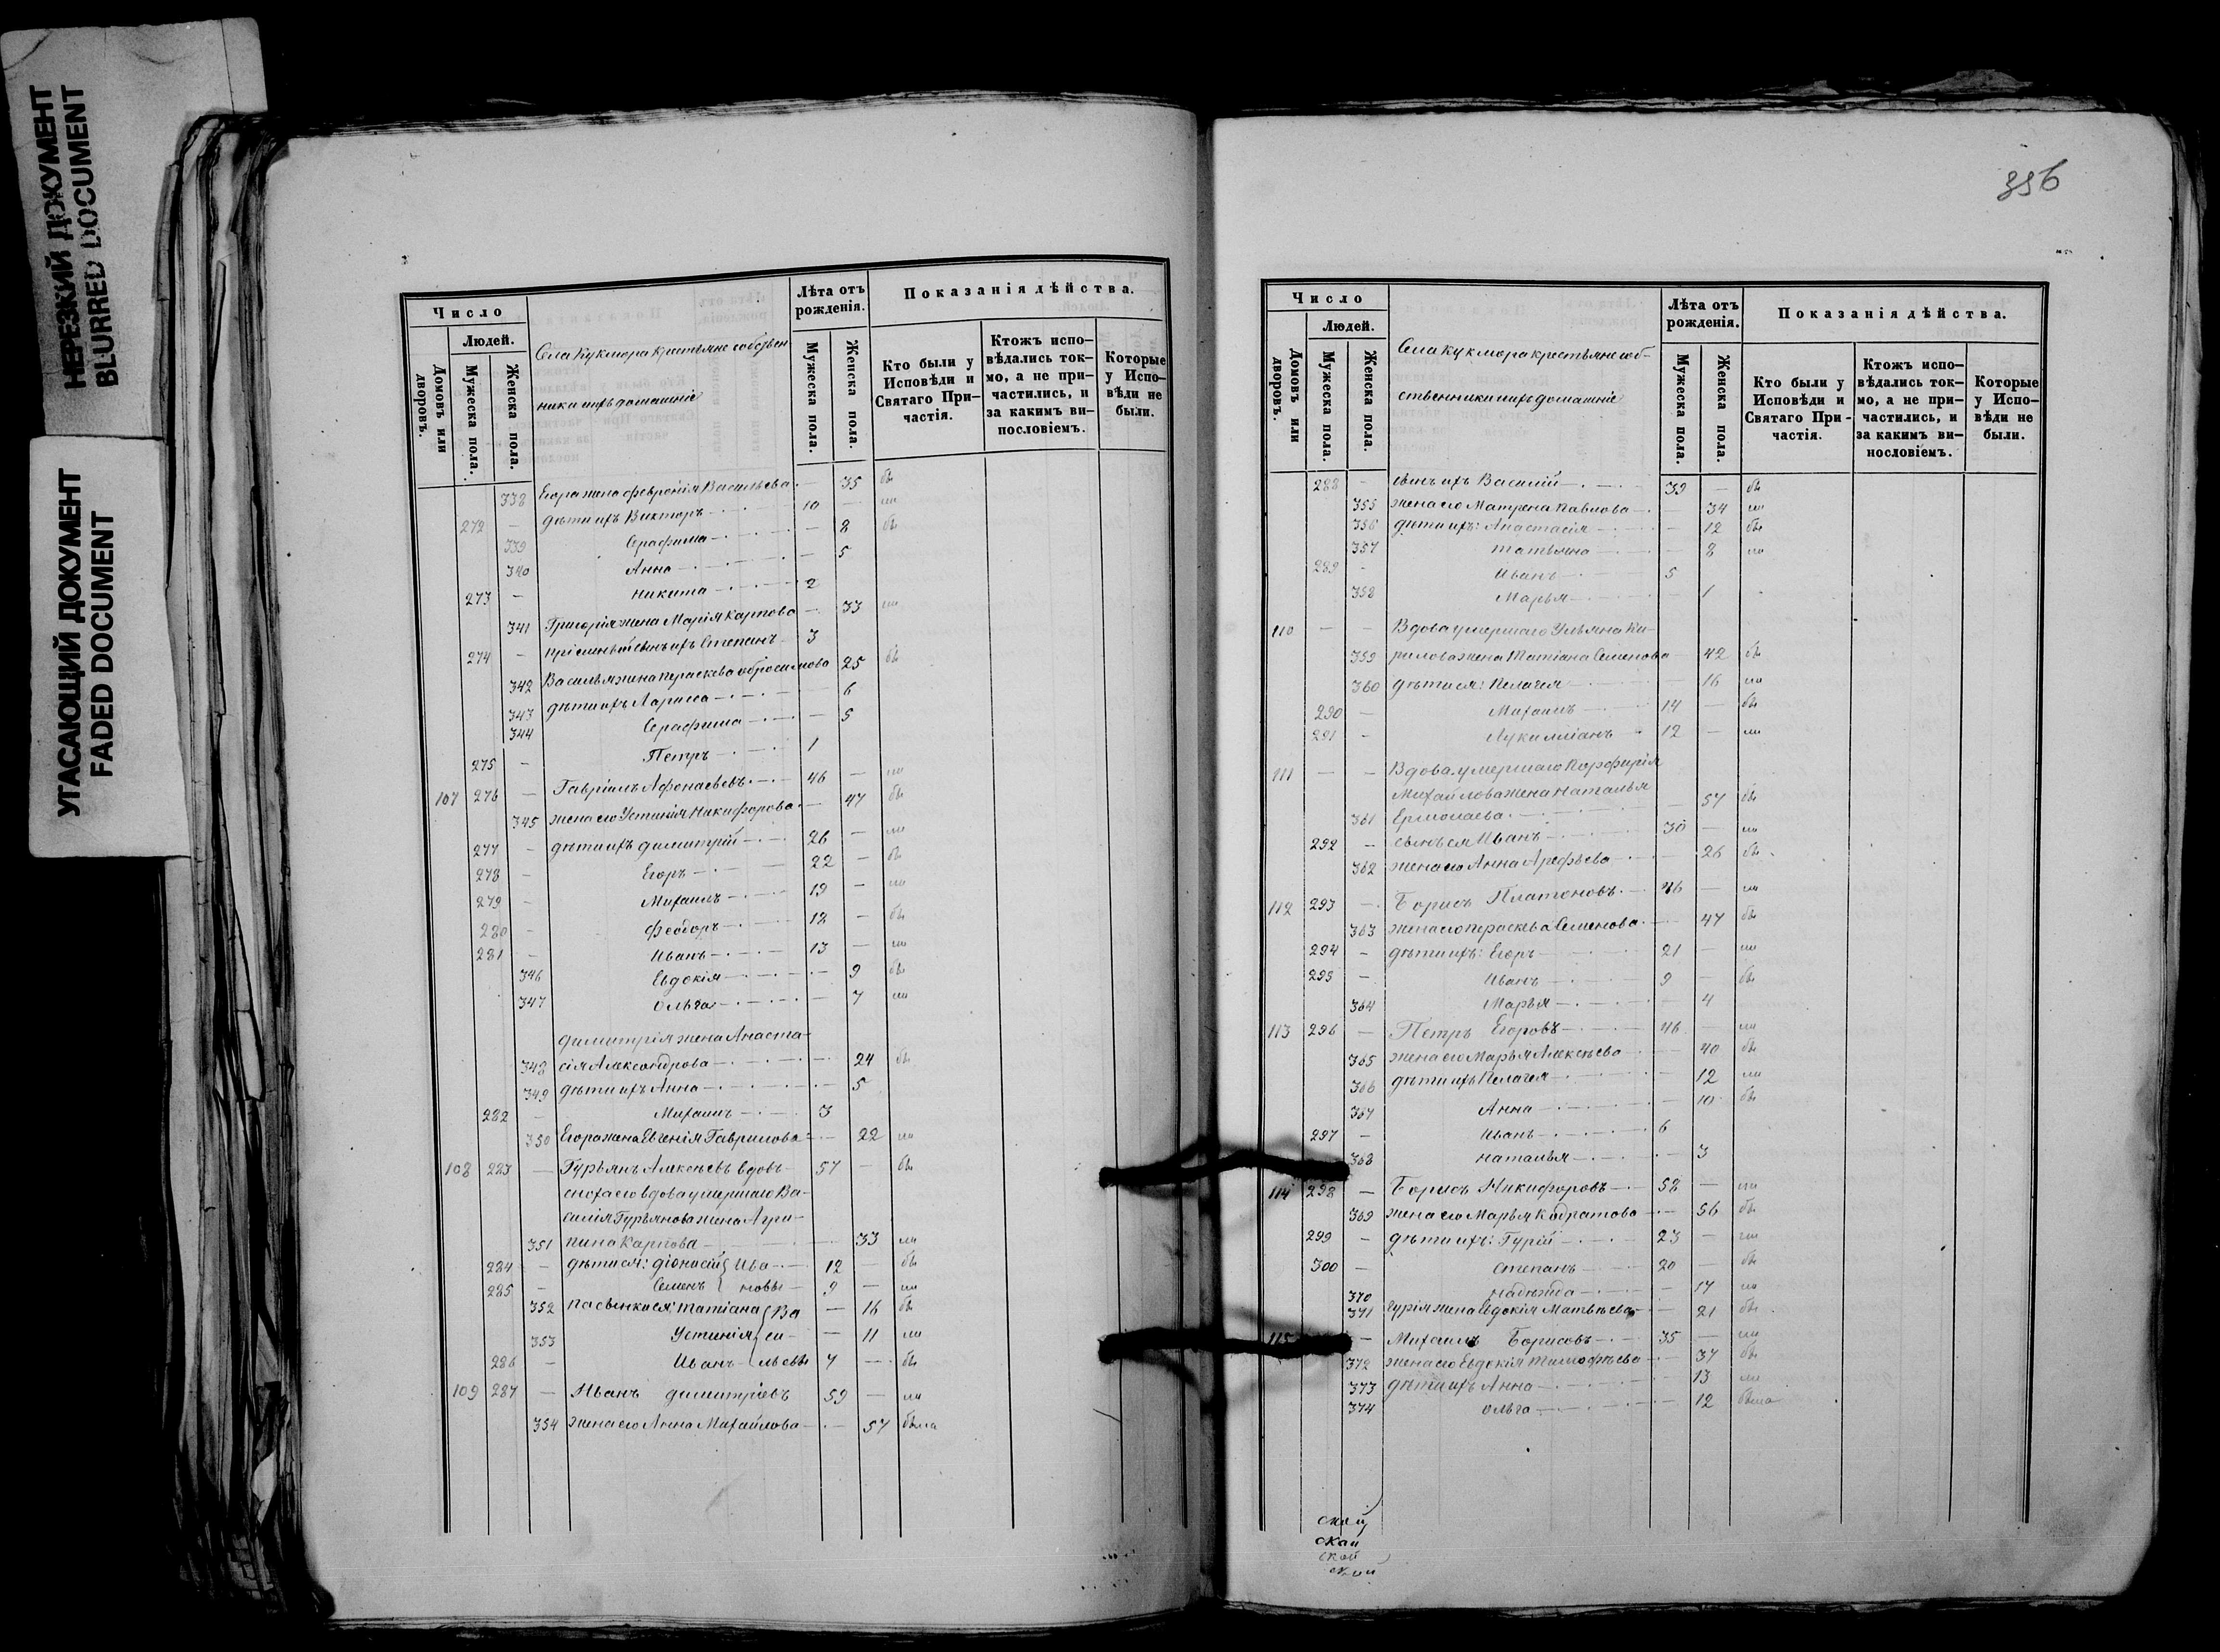 НЕРЕЗКИЙ ДОКУМЕНТ
BLURRED DOCUMENT
УГАСАЮЩИЙ ДОКУМЕНТ
FADED DOCUMENT
Число
Людей.
Домовъ или дворовъ.
Мужеска пола.
Женска пола.
Села Кукмора крестьяне собствен
ники ихъ домашніе
Лѣта отъ рожденія.
Мужеска пола.
Женска пола.
Показанія дѣйства.
Кто были у Исповѣди и Святаго При-частія.
Ктожъ испо-вѣдались ток-мо, а не при-частились, и за какимъ ви-пословіемъ.
Которые у Испо-вѣди не были.
338 Егора жена Февронія Васильева — 35 бы
272 — дѣти ихъ Викторъ 10 — ла
339 Серафима — 8 бы
340 Анна — 5
273 — Никита 2
341 Григорія жена Марія Карпова — 33 ла
274 — пріемный сынъ ихъ Степанъ 3
342 Василья жена Параскева Абросимова 25 бы
343 дѣти ихъ Лариса — 6
344 Серафима — 5
275 — Петръ 1
107 276 — Гавріилъ Афонасьевъ 46 — ла
345 жена его Устинія Никифорова — 47 бы
277 — дѣти ихъ Димитрій 26 — ла
278 — Егоръ 22 — бы
279 — Михаилъ 19 — ла
280 — Феодоръ 12 — бы
281 — Иванъ 13 — ла
346 Евдокія — 9 бы
347 Ольга — 7 ла
Димитрія жена Анаста-
348 сія Александрова — 24 бы
349 дѣти ихъ Анна — 5
282 — Михаилъ 3
350 Егора жена Евгенія Гаврилова — 22 ла
108 283 — Гурьянъ Алексѣевъ вдовъ 57 — бы
сноха его вдова умершаго Ва-
силія Гурьянова жена Агри-
351 пина Карпова — 33 ла
284 — дѣти ея: Діонисій Ива- 12 — бы
285 — Семенъ новы 9 — ла
352 пасынки ея: Татіана Ва — 16 бы
353 Устинія си- — 11 ла
286 — Иванъ льевы 7 — бы
109 287 — Иванъ Димитріевъ 59 — ла
354 жена его Анна Михайлова — 57 была
356
Число
Людей.
Домовъ или дворовъ.
Мужеска пола.
Женска пола.
Села Кукмора крестьяне соб-
ственники ихъ домашніе
Лѣта отъ рожденія.
Мужеска пола.
Женска пола.
Показанія дѣйства.
Кто были у Исповѣди и Святаго При-частія.
Ктожъ испо-вѣдались ток-мо, а не при-частились, и за какимъ ви-нословіемъ.
Которые у Испо-вѣди не были.
288 — сынъ ихъ Василій 39 — бы
355 жена его Матрена Павлова — 34 ла
356 дѣти ихъ: Анастасія — 12 бы
357 Татьяна — 8 ла
289 — Иванъ 5
358 Марья — 1
110 — — Вдова умершаго Ульяна Ки-
359 рилова жена Татіана Семенова — 42 бы
360 дѣти ея: Пелагея — 16 ла
290 — Михаилъ 14 — бы
291 — Лукилліанъ 12 — ла
111 — — Вдова умершаго Порфирія
Михайлова жена Наталья
361 Ермолаева — 57 бы
292 — сынъ ея Иванъ 30 — ла
362 жена его Анна Арефьева — 26 бы
112 293 — Борисъ Платоновъ 46 — ла
363 жена его Параскева Семенова — 47 бы
294 — дѣти ихъ: Егоръ 21 — ла
295 — Иванъ 9 — бы
364 Марья — 4
113 296 — Петръ Егоровъ 46 — ла
365 жена его Марья Алексѣева — 40 бы
366 дѣти ихъ Пелагея — 12 ла
367 Анна — 10 бы
297 — Иванъ 6
368 Наталья — 3
114 298 — Борисъ Никифоровъ 58 — ла
369 жена его Марья Кодратова — 56 бы
299 — дѣти ихъ: Гурій 23 — ла
300 — Степанъ 20 — бы
370 Надежда — 17 ла
371 Гурія жена Евдокія Матвѣева — 21 бы
115 — Михаилъ Борисовъ 35 — ла
372 жена его Евдокія Тимофѣева — 37 бы
373 дѣти ихъ Анна — 13 ла
374 Ольга — 12 была
ской